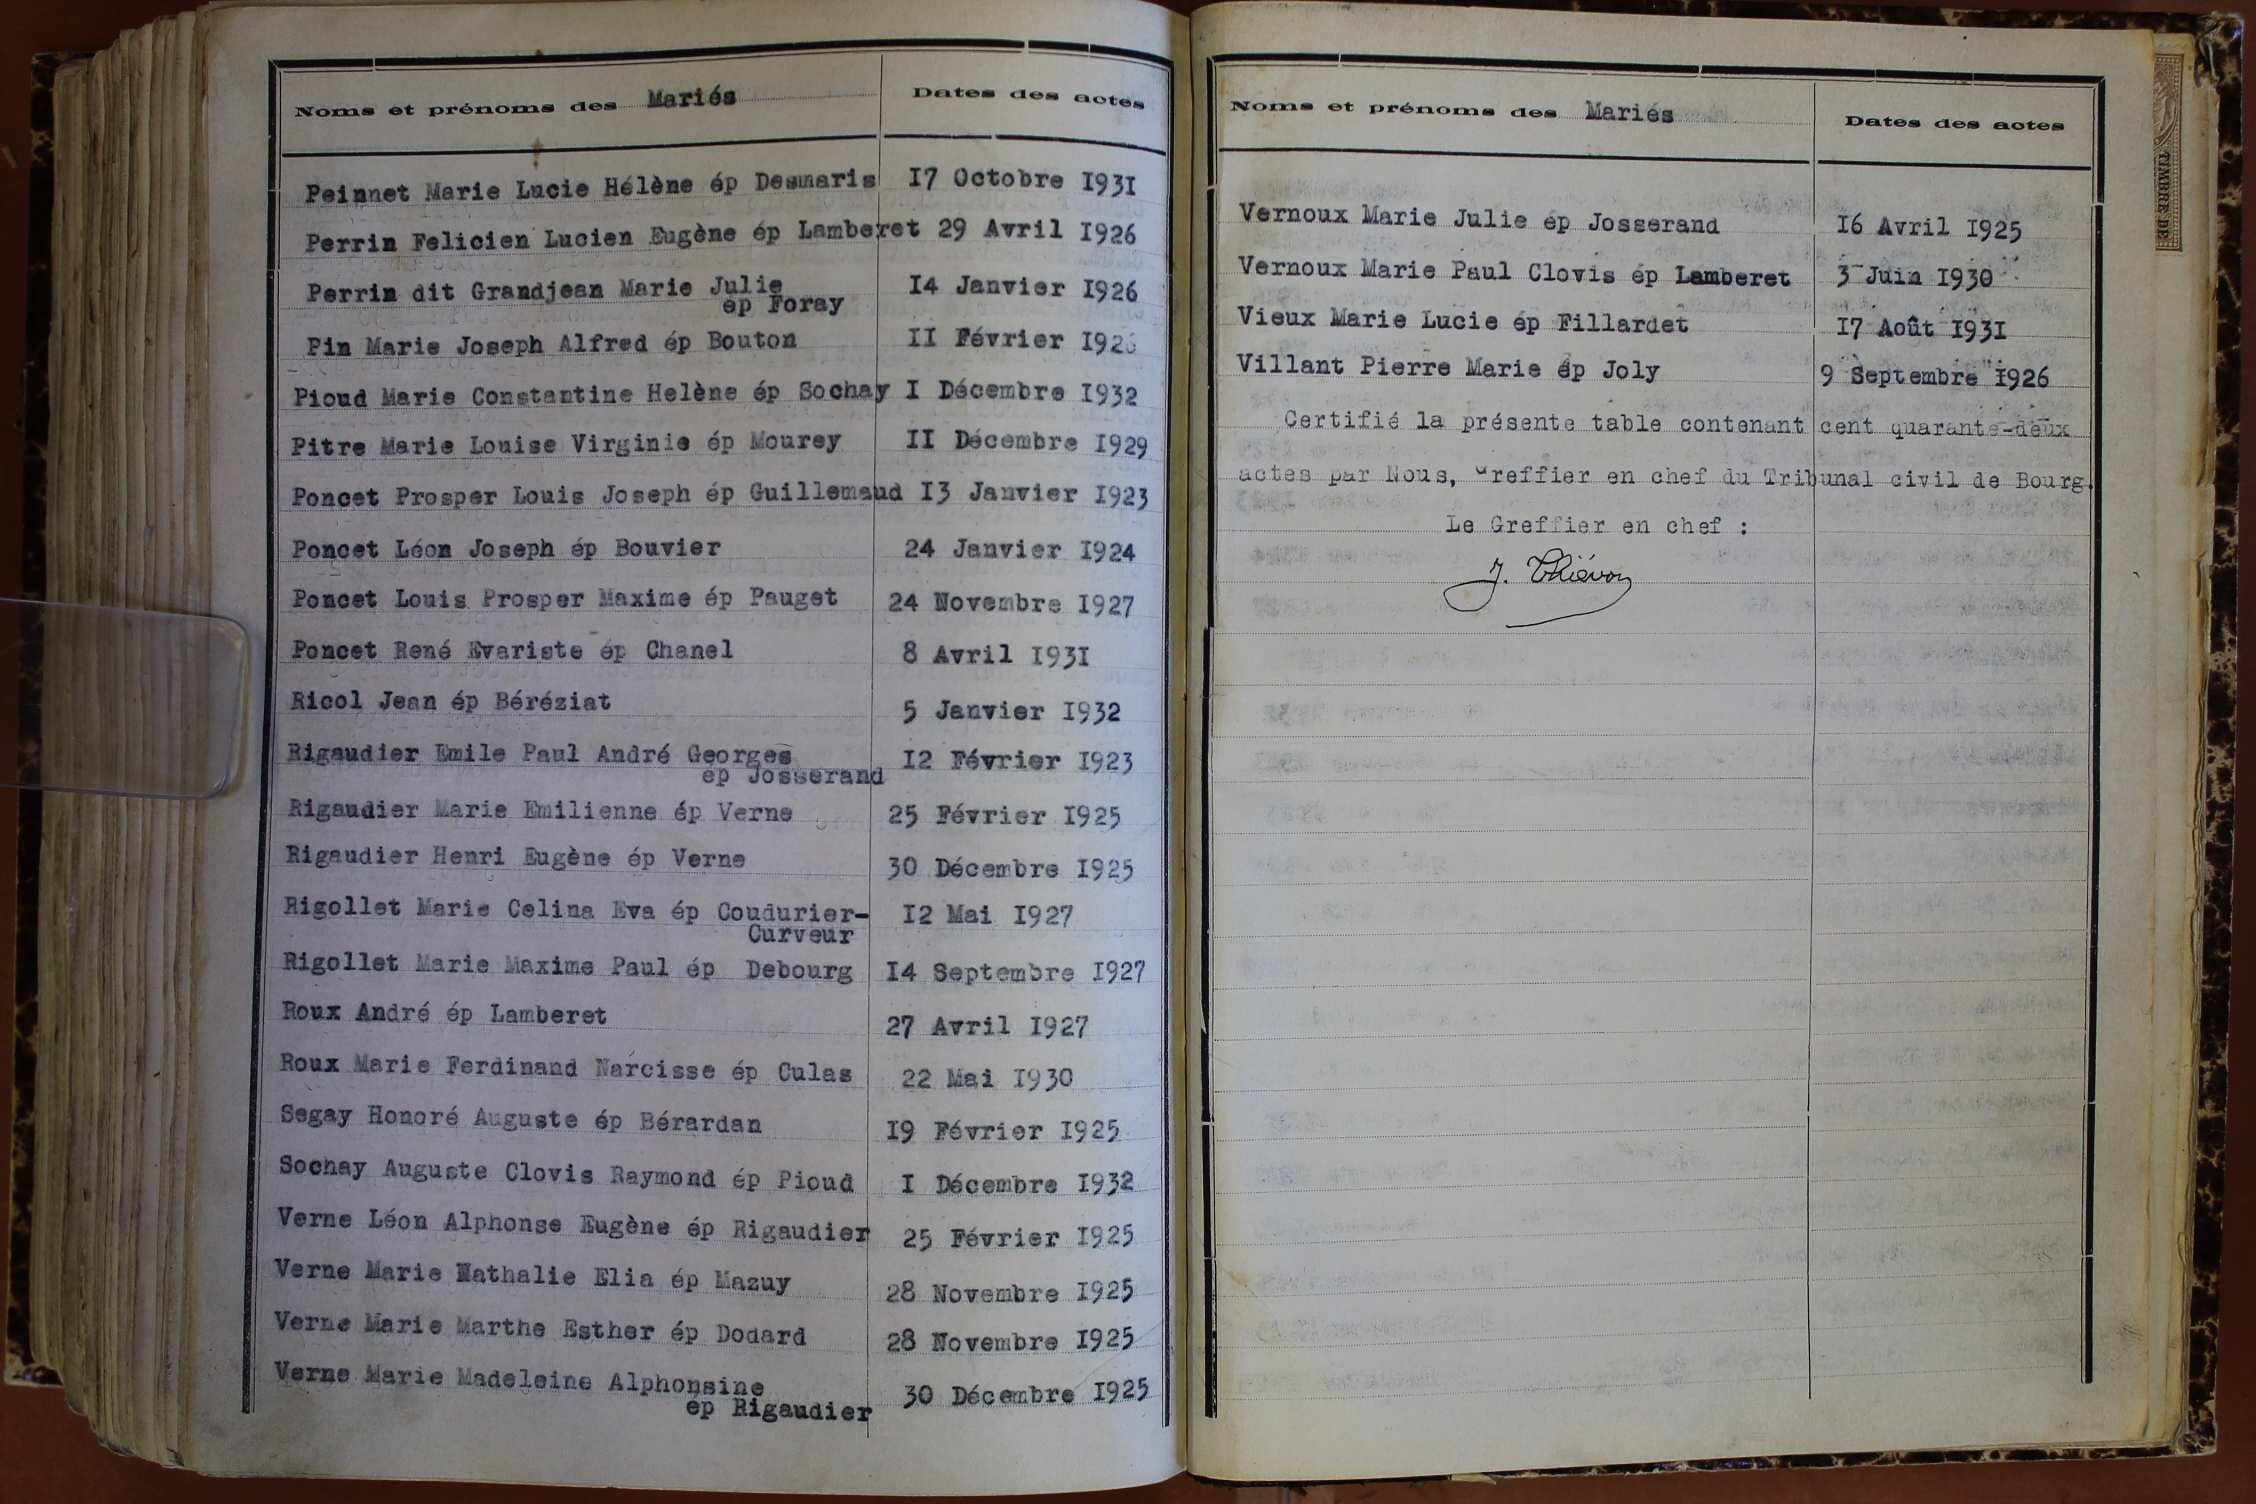 Noms et prénoms des Mariés Dates des actes
Peinnet Marie Lucie Hélène ép Desmaris 17 Octobre 1931
Perrin Felicien Lucien Eugène ép Lamberet 29 Avril 1926
Perrin dit Grandjean Marie Julie 14 Janvier 1926
ép Foray
Pin Marie Joseph Alfred ép Bouton II Février 1926
Pioud Marie Constantine Helène ép Sochay I Décembre 1932
Pitre Marie Louise Virginie ép Mourey II Décembre 1929
Poncet Prosper Louis Joseph ép Guillemaud 13 Janvier 1923
Poncet Léon Joseph ép Bouvier 24 Janvier 1924
Poncet Louis Prosper Maxime ép Pauget 24 Novembre 1927
Poncet René Evariste ép Chanel 8 Avril 1931
Ricol Jean ép Béréziat 5 Janvier 1932
Rigaudier Emile Paul André Georges 12 Février 1923
ep Josserand
Rigaudier Marie Emilienne ép Verne 25 Février 1925
Rigaudier Henri Eugène ép Verne 30 Décembre 1925
Rigollet Marie Celina Eva ép Coudurier- 12 Mai 1927
Curveur
Rigollet Marie Maxime Paul ép Debourg 14 Septembre 1927
Roux André ép Lamberet 27 Avril 1927
Roux Marie Ferdinand Narcisse ép Culas 22 Mai 1930
Segay Honoré Auguste ép Bérardan 19 Février 1925
Sochay Auguste Clovis Raymond ép Pioud I Décembre 1932
Verne Léon Alphonse Eugène ép Rigaudier 25 Février 1925
Verne Marie Nathalie Elia ép Mazuy 28 Novembre 1925
Verne Marie Marthe Esther ép Dodard 28 Novembre 1925
Verne Marie Madeleine Alphonsine 30 Décembre 1925
ep Rigaudier
Noms et prénoms des Mariés Dates des actes
Vernoux Marie Julie ép Josserand 16 Avril 1925
Vernoux Marie Paul Clovis ép Lamberet 3 Juin 1930
Vieux Marie Lucie ép Fillardet 17 Août 1931
Villant Pierre Marie ép Joly 9 Septembre 1926
Certifié la présente table contenant cent quarante-deux
actes par Nous, Greffier en chef du Tribunal civil de Bourg.
Le Greffier en chef :
J. Thiévon
TIMBRE DE